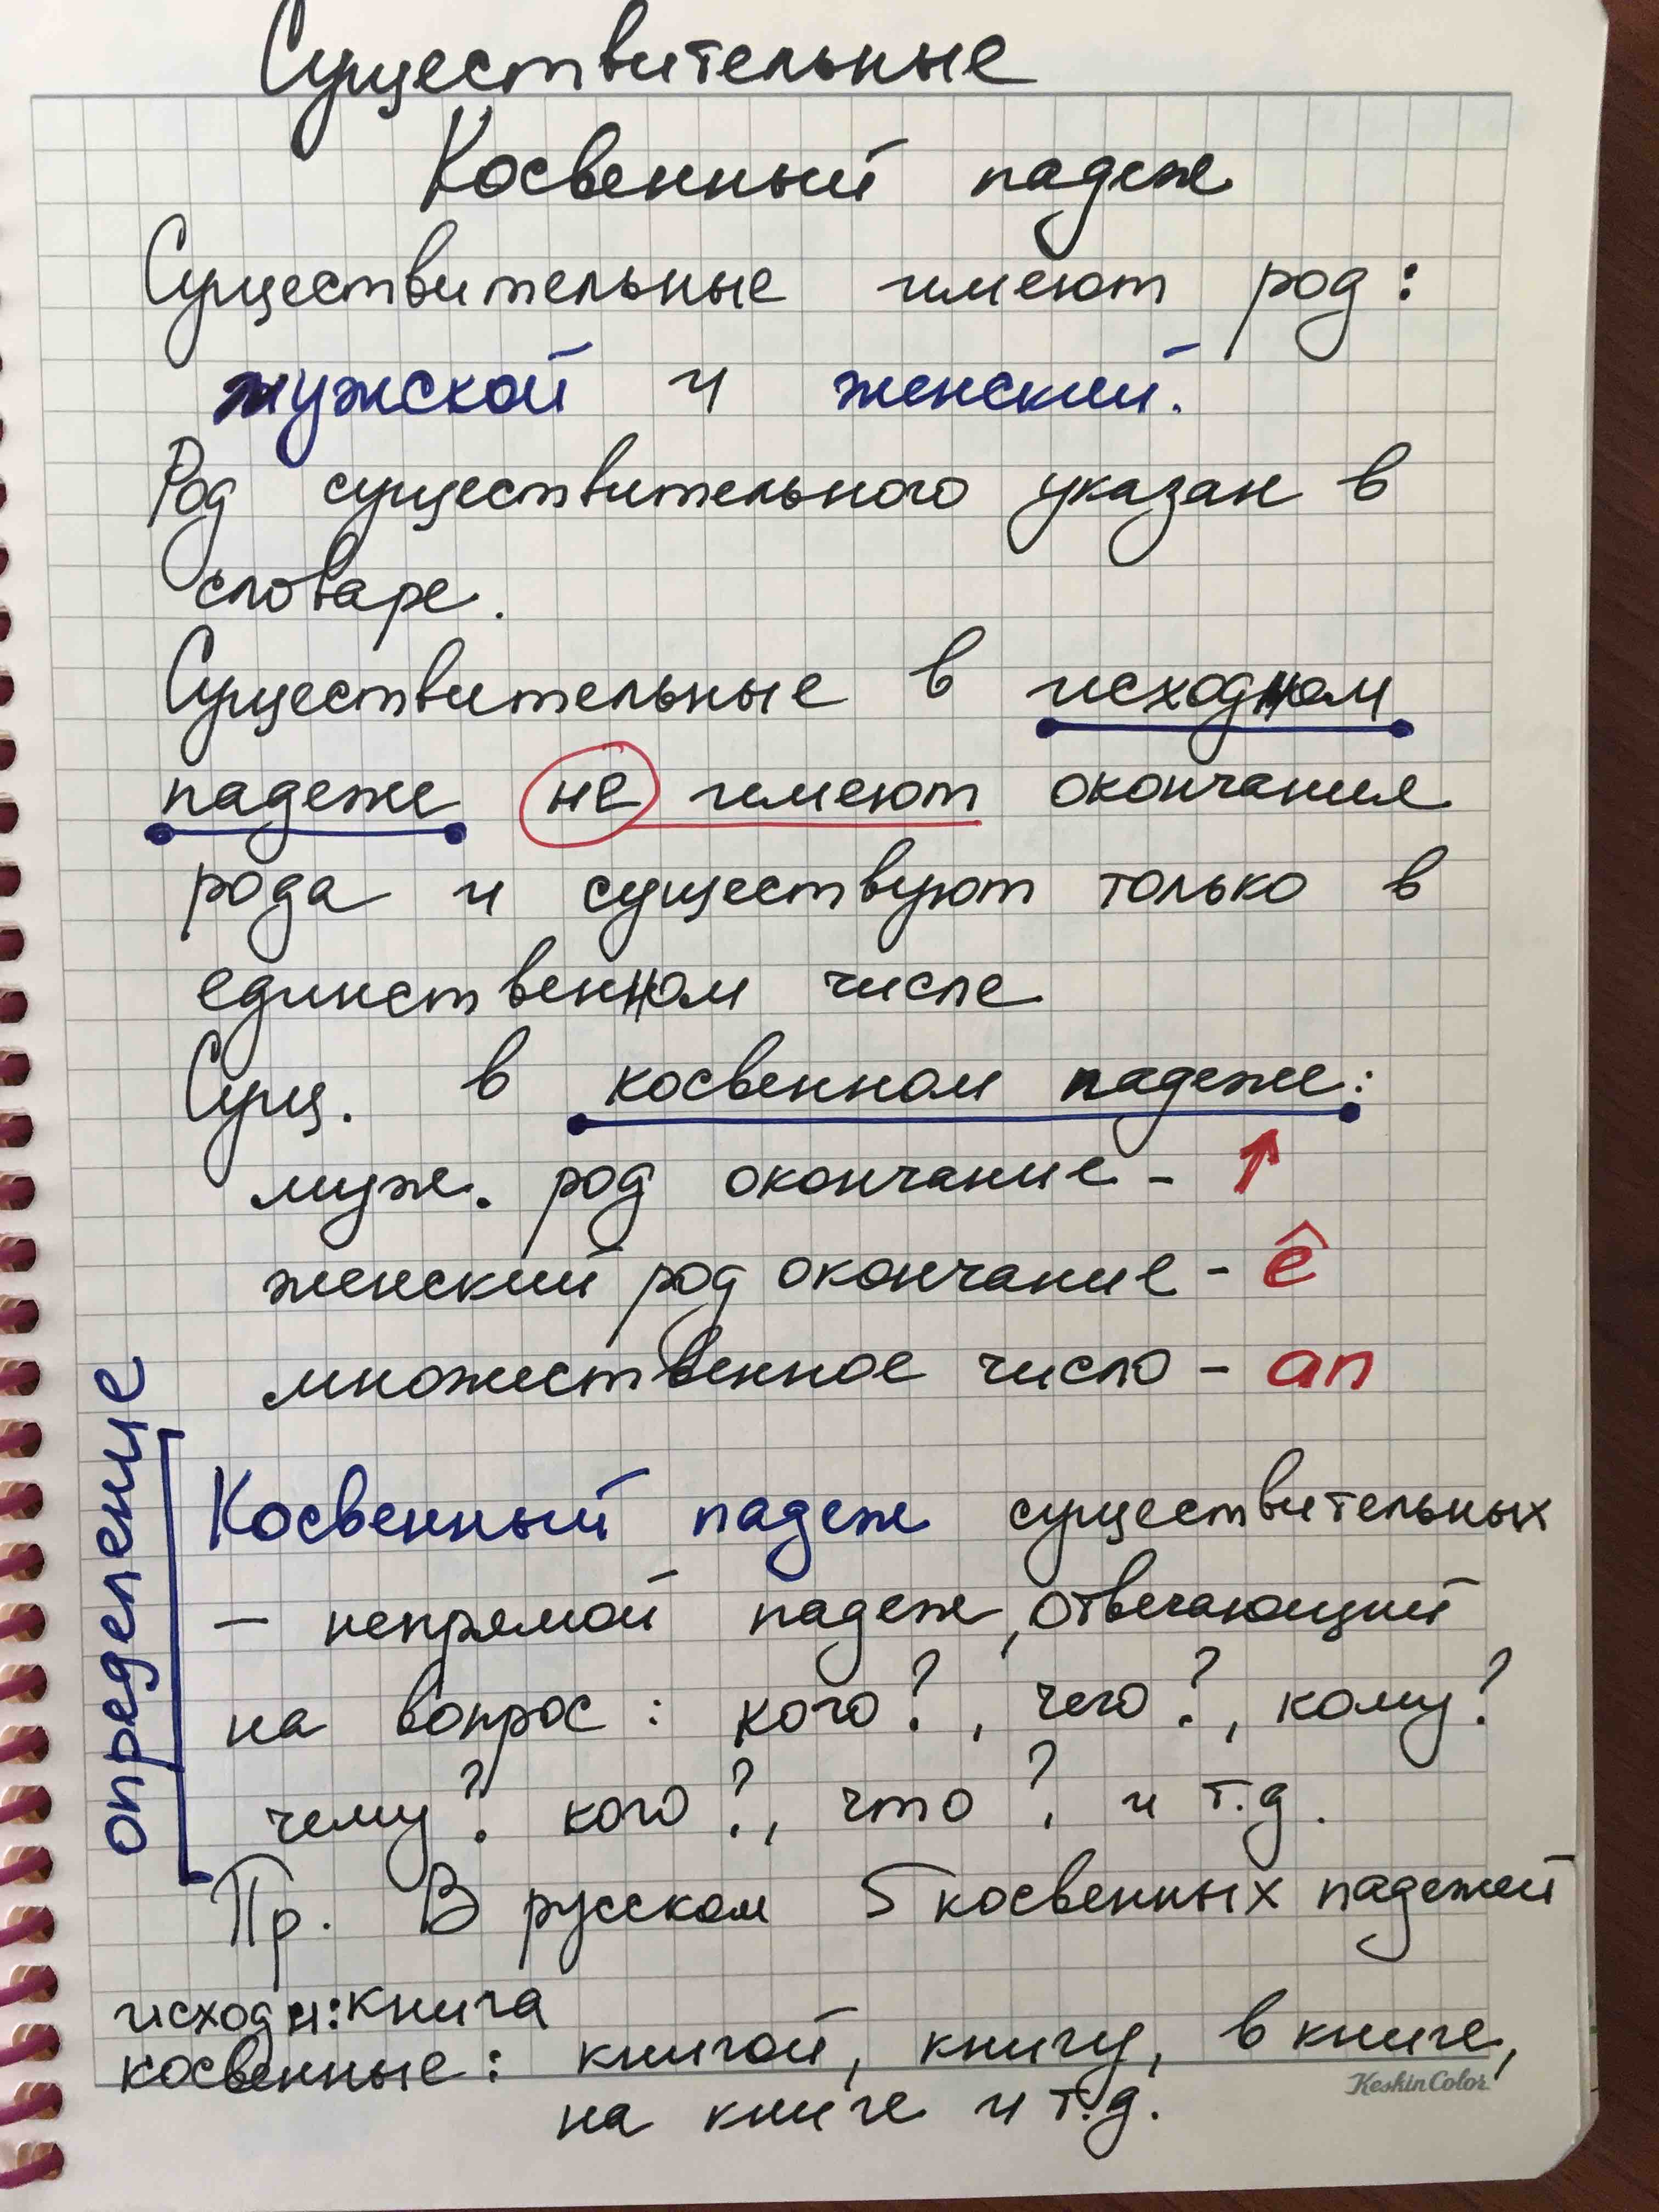 Существительные
Косвенный падеж
Существительные имеют род:
мужской и женский.
Род существительного указан в
словаре.
Существительные в исходном
падеже не имеют окончания
рода и существуют только в
единственном числе
Сущ. в косвенном падеже:
муж. род окончание - ↑
женский род окончание - ê
множественное число - an
определение
Косвенный падеж существительных
– непрямой падеж, отвечающий
на вопрос : кого?, чего?, кому?
чему? кого?, что? и т.д.
Пр. В русском 5 косвенных падежей
исходн: книга
косвенные: книгой, книгу, в книге,
на книге и т.д.
KeskinColor